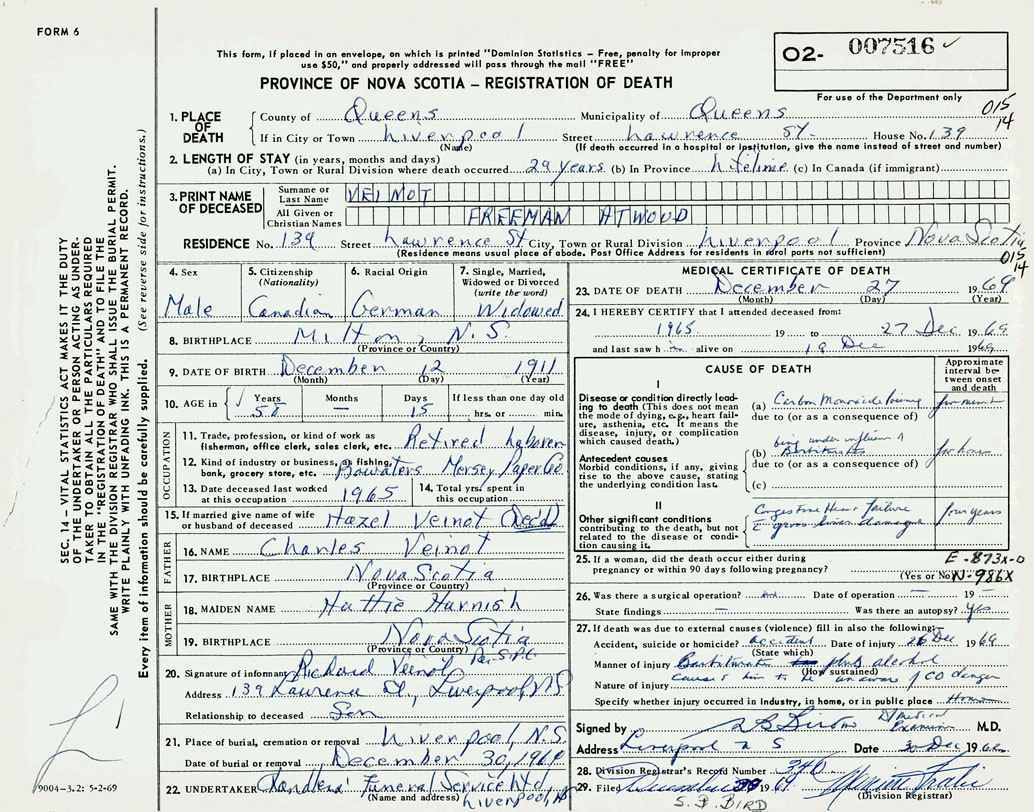 FORM 6
This form, if placed in an envelope, on which is printed "Dominion Statistics – Free, penalty for improper
use $50," and properly addressed will pass through the mail "FREE"
PROVINCE OF NOVA SCOTIA – REGISTRATION OF DEATH
O2- 007516 ✓
For use of the Department only
015
14
1. PLACE OF DEATH
County of Queens Municipality of Queens
If in City or Town Liverpool Street Lawrence St. House No. 139
(Name) (If death occurred in a hospital or institution, give the name instead of street and number)
2. LENGTH OF STAY (in years, months and days)
(a) In City, Town or Rural Division where death occurred 29 years (b) In Province Lifetime (c) In Canada (if immigrant)
3. PRINT NAME OF DECEASED
Surname or Last Name VEINOT
All Given or Christian Names FREEMAN ATWOOD
RESIDENCE No. 139 Street Lawrence St City, Town or Rural Division Liverpool Province Nova Scotia
(Residence means usual place of abode. Post Office Address for residents in rural parts not sufficient)
015
14
4. Sex Male
5. Citizenship (Nationality) Canadian
6. Racial Origin German
7. Single, Married, Widowed or Divorced (write the word) Widowed
8. BIRTHPLACE Milton, N.S.
(Province or Country)
9. DATE OF BIRTH December 12 1911
(Month) (Day) (Year)
10. AGE in Years 58 Months – Days 15 If less than one day old hrs. or min.
OCCUPATION
11. Trade, profession, or kind of work as fisherman, office clerk, sales clerk, etc. Retired Laborer
12. Kind of industry or business, as fishing, bank, grocery store, etc. Bowaters Mersey Paper Co.
13. Date deceased last worked at this occupation 1965
14. Total yrs. spent in this occupation
15. If married give name of wife or husband of deceased Hazel Veinot (Dec'd)
FATHER
16. NAME Charles Veinot
17. BIRTHPLACE Nova Scotia
(Province or Country)
MOTHER
18. MAIDEN NAME Hattie Harnish
19. BIRTHPLACE Nova Scotia
(Province or Country)
20. Signature of informant Richard Veinot Per.
Address 139 Lawrence St., Liverpool NS
Relationship to deceased Son
21. Place of burial, cremation or removal Liverpool, N.S.
Date of burial or removal December 30, 1969
22. UNDERTAKER Funeral Service Ltd
(Name and address) Liverpool, NS
MEDICAL CERTIFICATE OF DEATH
23. DATE OF DEATH December 27 1969
(Month) (Day) (Year)
24. I HEREBY CERTIFY that I attended deceased from:
1968 19 to 27 Dec 1969
and last saw him alive on 19 Dec 1969
CAUSE OF DEATH
Approximate interval between onset and death
I
Disease or condition directly leading to death (This does not mean the mode of dying, e.g., heart failure, asthenia, etc. It means the disease, injury, or complication which caused death.)
(a) Carbon Monoxide
due to (or as a consequence of)
Antecedent causes
Morbid conditions, if any, giving rise to the above cause, stating the underlying condition last.
being under influence of
(b) Barbiturates few hours
due to (or as a consequence of)
(c)
II
Other significant conditions
contributing to the death, but not related to the disease or condition causing it.
Congestive Heart Failure
gross damage
four years
25. If a woman, did the death occur either during
pregnancy or within 90 days following pregnancy? (Yes or No)
E-873X-0
N-986X
26. Was there a surgical operation? Date of operation – 19 –
State findings – Was there an autopsy? Yes
27. If death was due to external causes (violence) fill in also the following:
Accident, suicide or homicide? accident Date of injury 26 Dec 1969
(State which)
Manner of injury Barbiturates plus alcohol
(How sustained)
Nature of injury caused him to be unaware of CO danger
Specify whether injury occurred in industry, in home, or in public place Home
Signed by Medical Examiner M.D.
Address Liverpool N S Date 30 Dec 1969
28. Division Registrar's Record Number 340
29. Filed December 29 1969
(Division Registrar)
S. P. BIRD
SEC. 14 – VITAL STATISTICS ACT MAKES IT THE DUTY
OF THE UNDERTAKER OR PERSON ACTING AS UNDER-
TAKER TO OBTAIN ALL THE PARTICULARS REQUIRED
IN THE "REGISTRATION OF DEATH" AND TO FILE THE
SAME WITH THE DIVISION REGISTRAR WHO SHALL ISSUE THE BURIAL PERMIT.
WRITE PLAINLY WITH UNFADING INK. THIS IS A PERMANENT RECORD.
Every item of information should be carefully supplied. (See reverse side for instructions.)
9004-3.2: 5-2-69